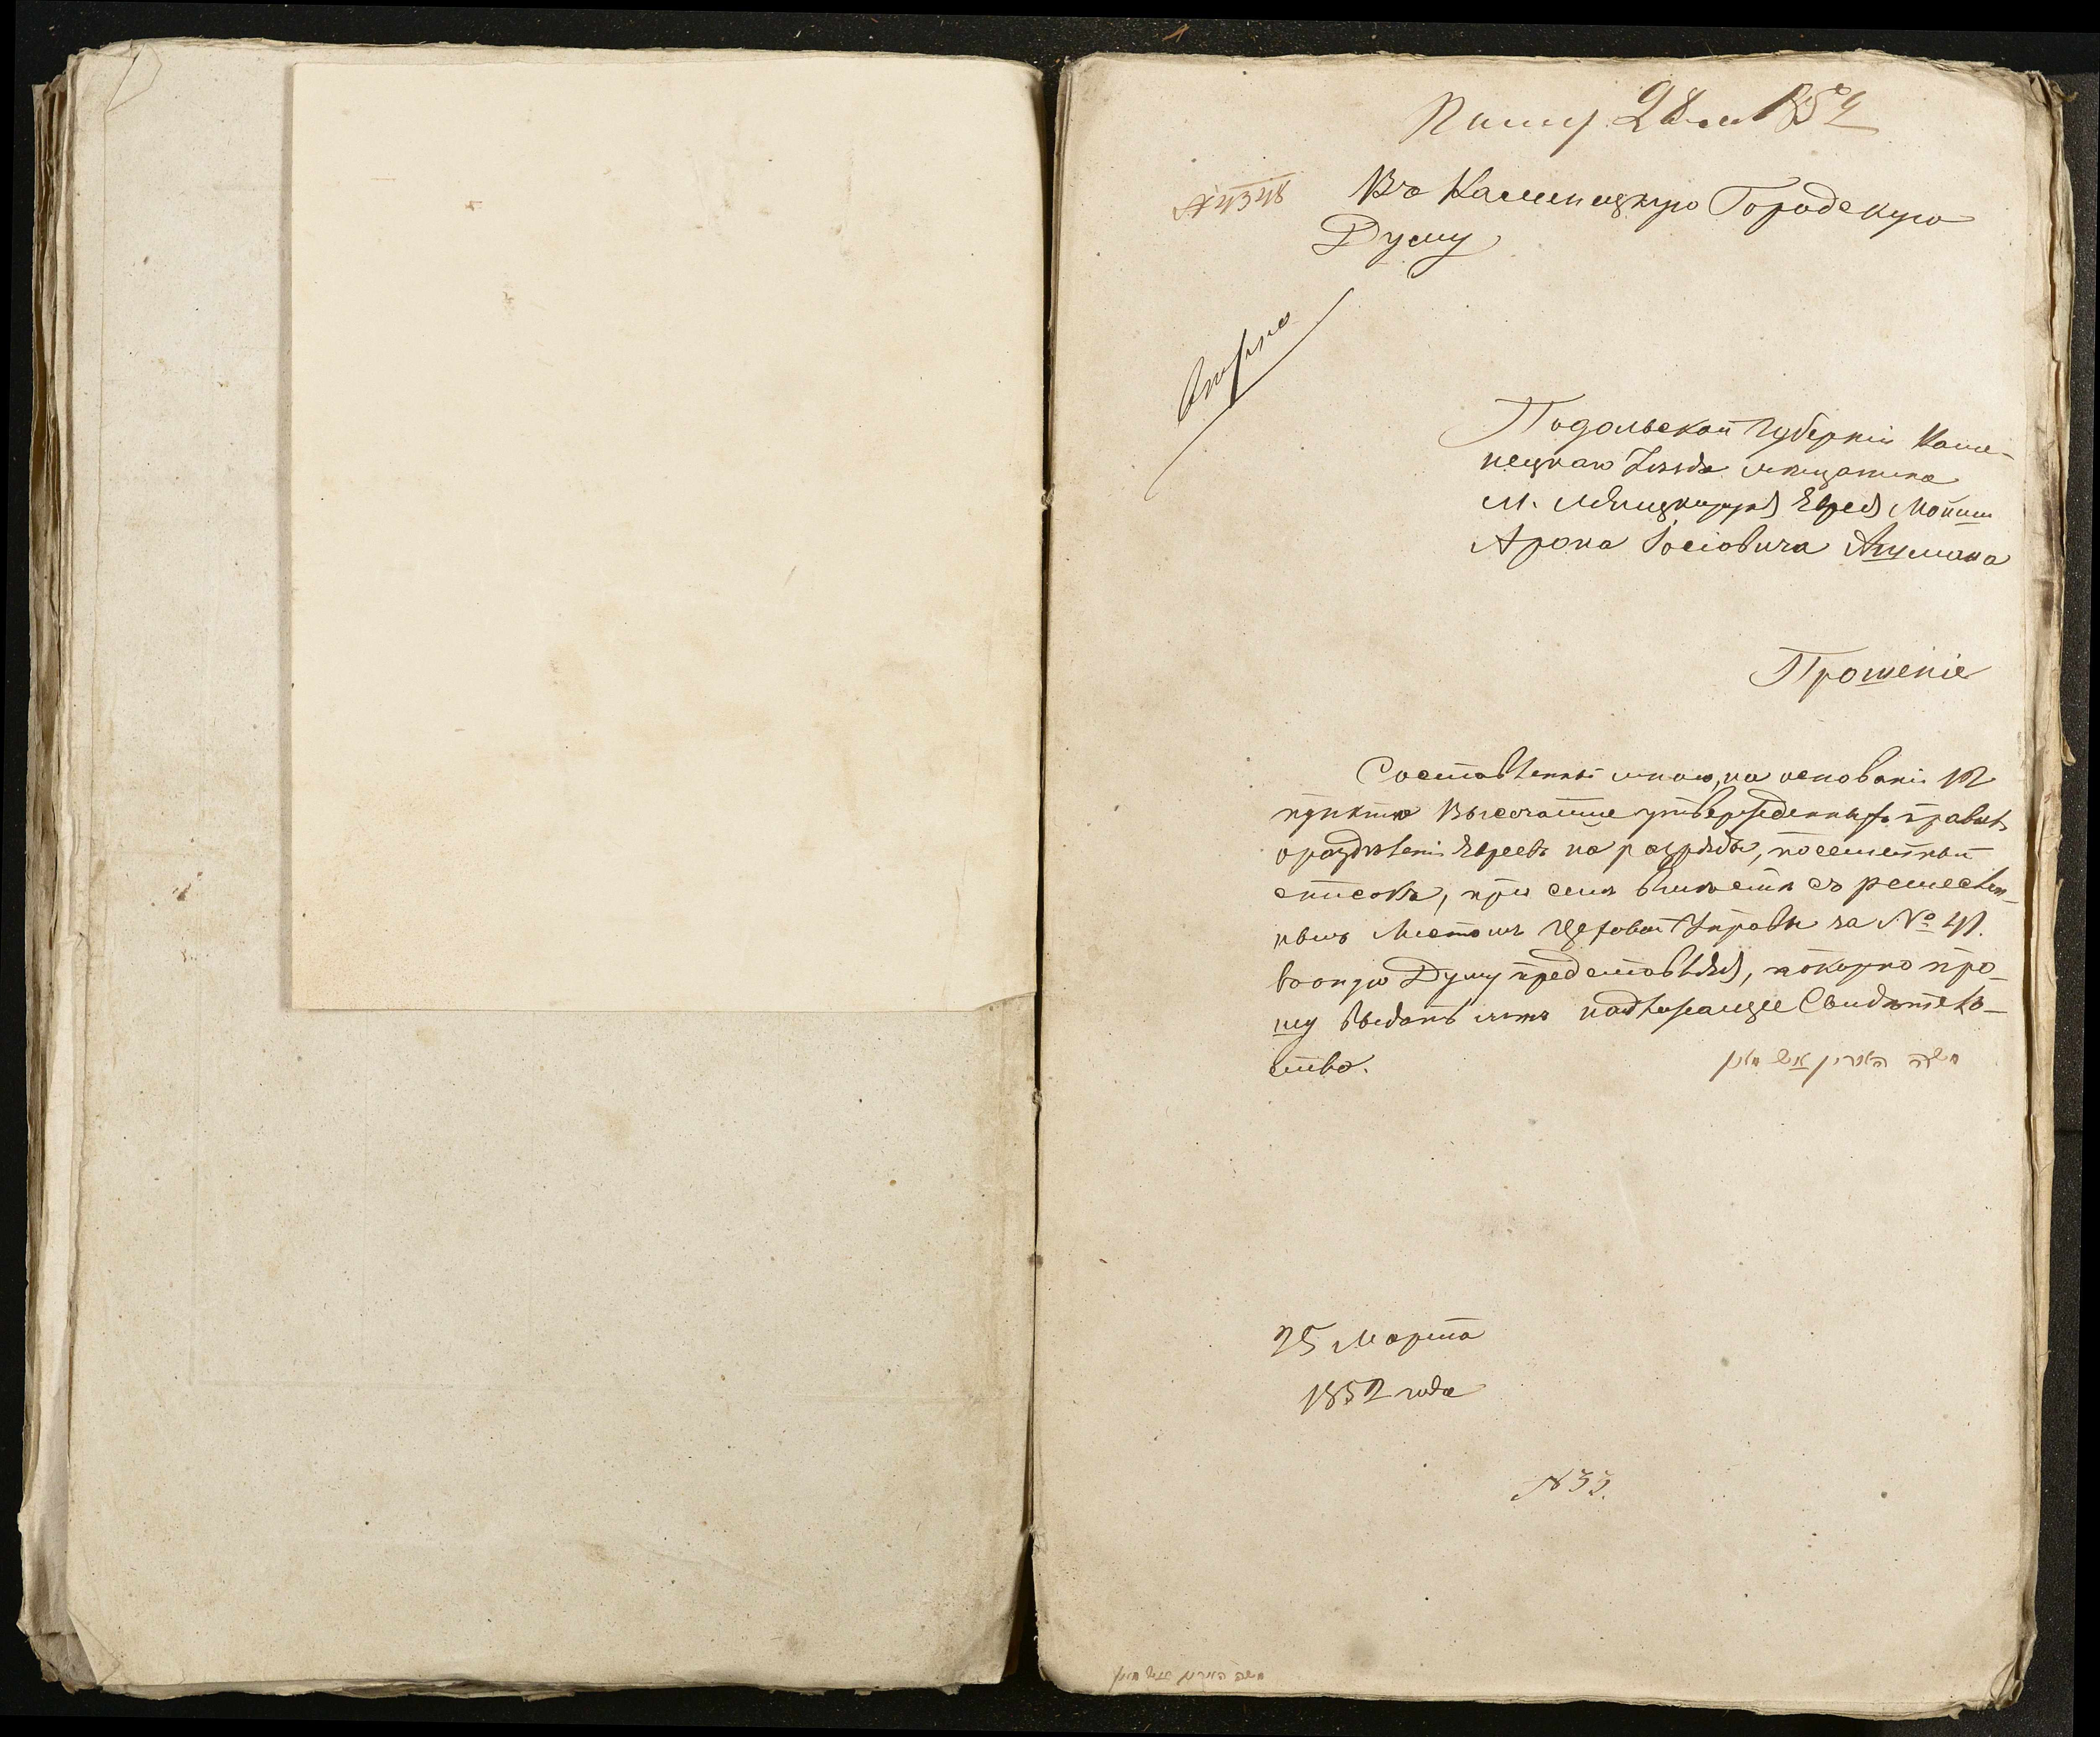 28 1852
№ 4348
Въ Каменецкую Городскую
Думу
Подольской Губерніи Каме-
нецкаго Уѣзда мѣщанина
м. Еврея Мошки
Арона Іосіовича
Прошеніе
Составленный мною, на основаніи 12
пункта Высочайше утвержденныхъ правилъ
о раздѣленіи Евреевъ на разряды, посемейный
списокъ, при семъ вмѣстѣ съ ремеслен-
нымъ Листомъ Цеховой Управы за № 41.
въ оную Думу представляя, покорно про-
шу выдать мнѣ надлежащее Свидѣтель-
ство.
משה הארין
25 Марта
1852 года
№ 33.
משה הארין